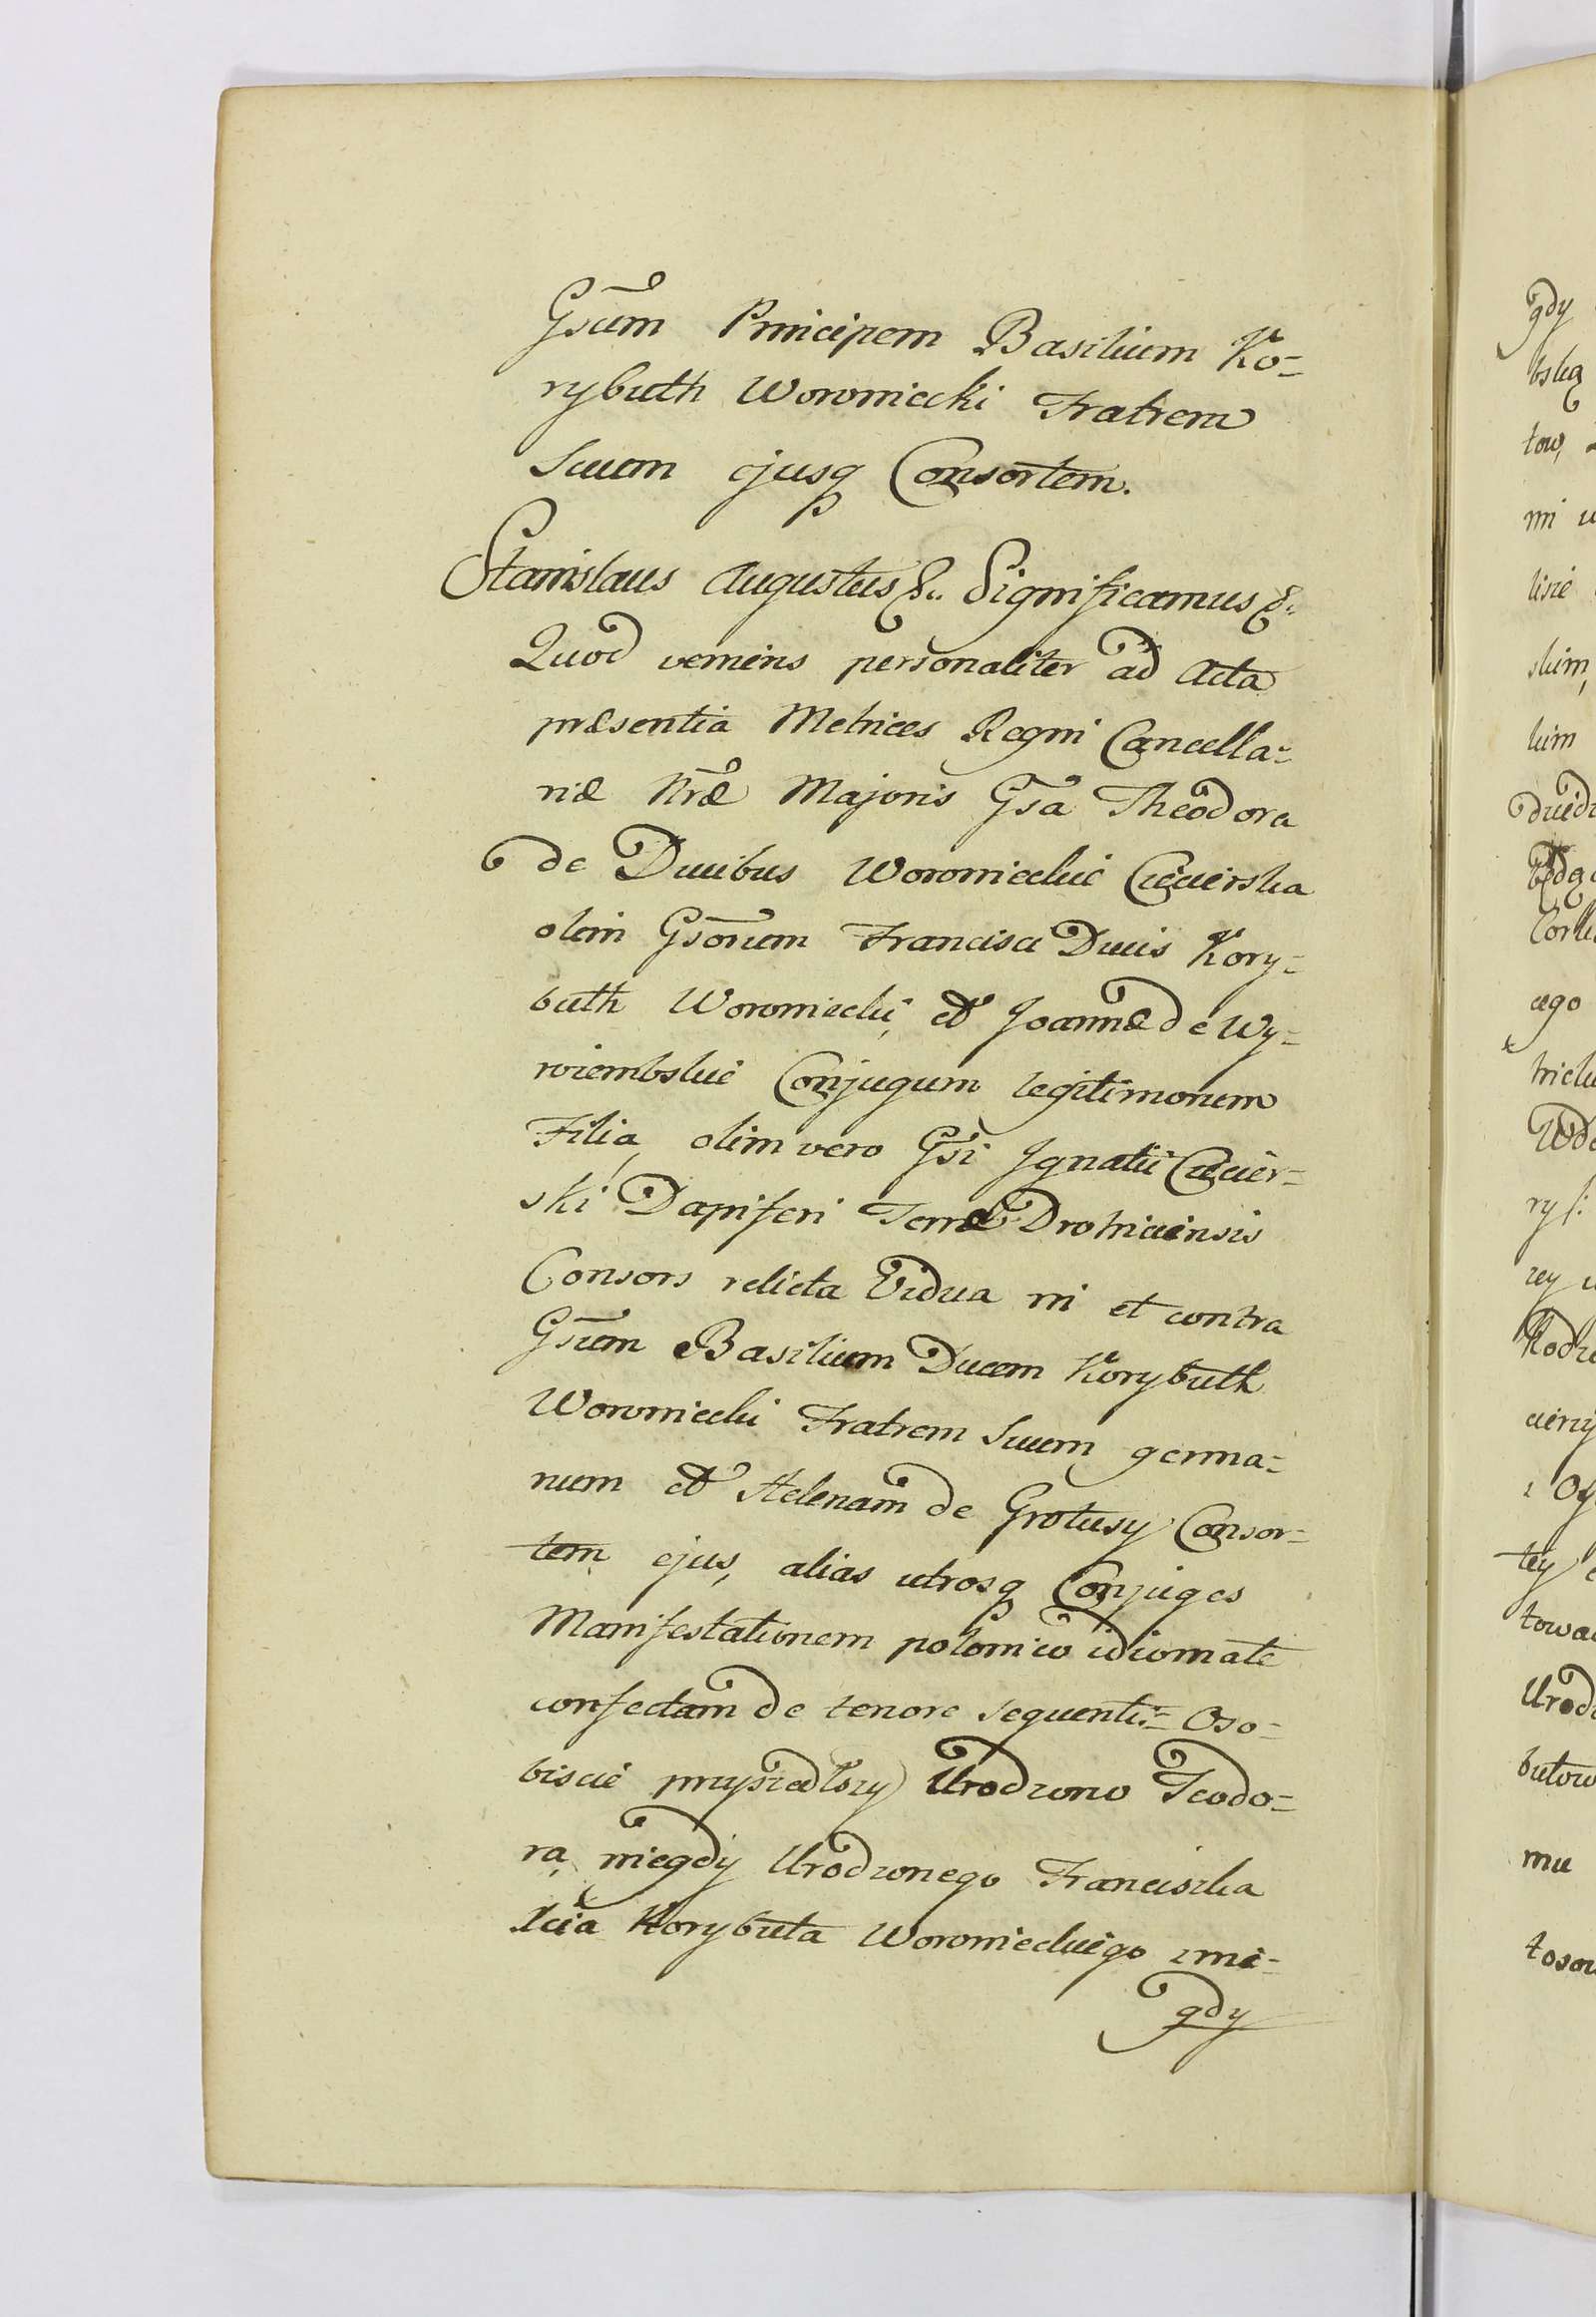 Gsum Principem Basilium Ko=
rybuth Woroniecki Fratrem
Suum ejusq Consortem.
Stanislaus Augustus &. Significamus &.
Quod veniens personaliter ad Acta
præsentia Metrices Regni Cancella=
riæ Nræ Majoris Gsa Theodora
de Ducibus Woronieckie Ciecierska
olim Gsorum Francisci Ducis Kory=
buth Woroniecki, et Joannæ de Wy=
roiembskie Conjugum legitimorum
Filia, olim vero Gsi Ignatii Ciecier=
ski Dapiferi Terræ Drohiciensis
Consors relicta Vidua in et contra
Gsum Basilium Ducem Korybuth
Woroniecki Fratrem Suum germa=
num et Helenam de Grotusy Consor=
tem ejus, alias utrosq Conjuges
Manifestationem polonico idiomate
confectam de tenore sequenti= Oso=
biscie przyszedłszy Urodzono Teodo=
ra, niegdy Urodzonego Franciszka
Xcia Korybuta Woronieckiego z nie=
gdy
gdy
tow,
ni
lisie
skim,
kim
cego
ry/:
mu